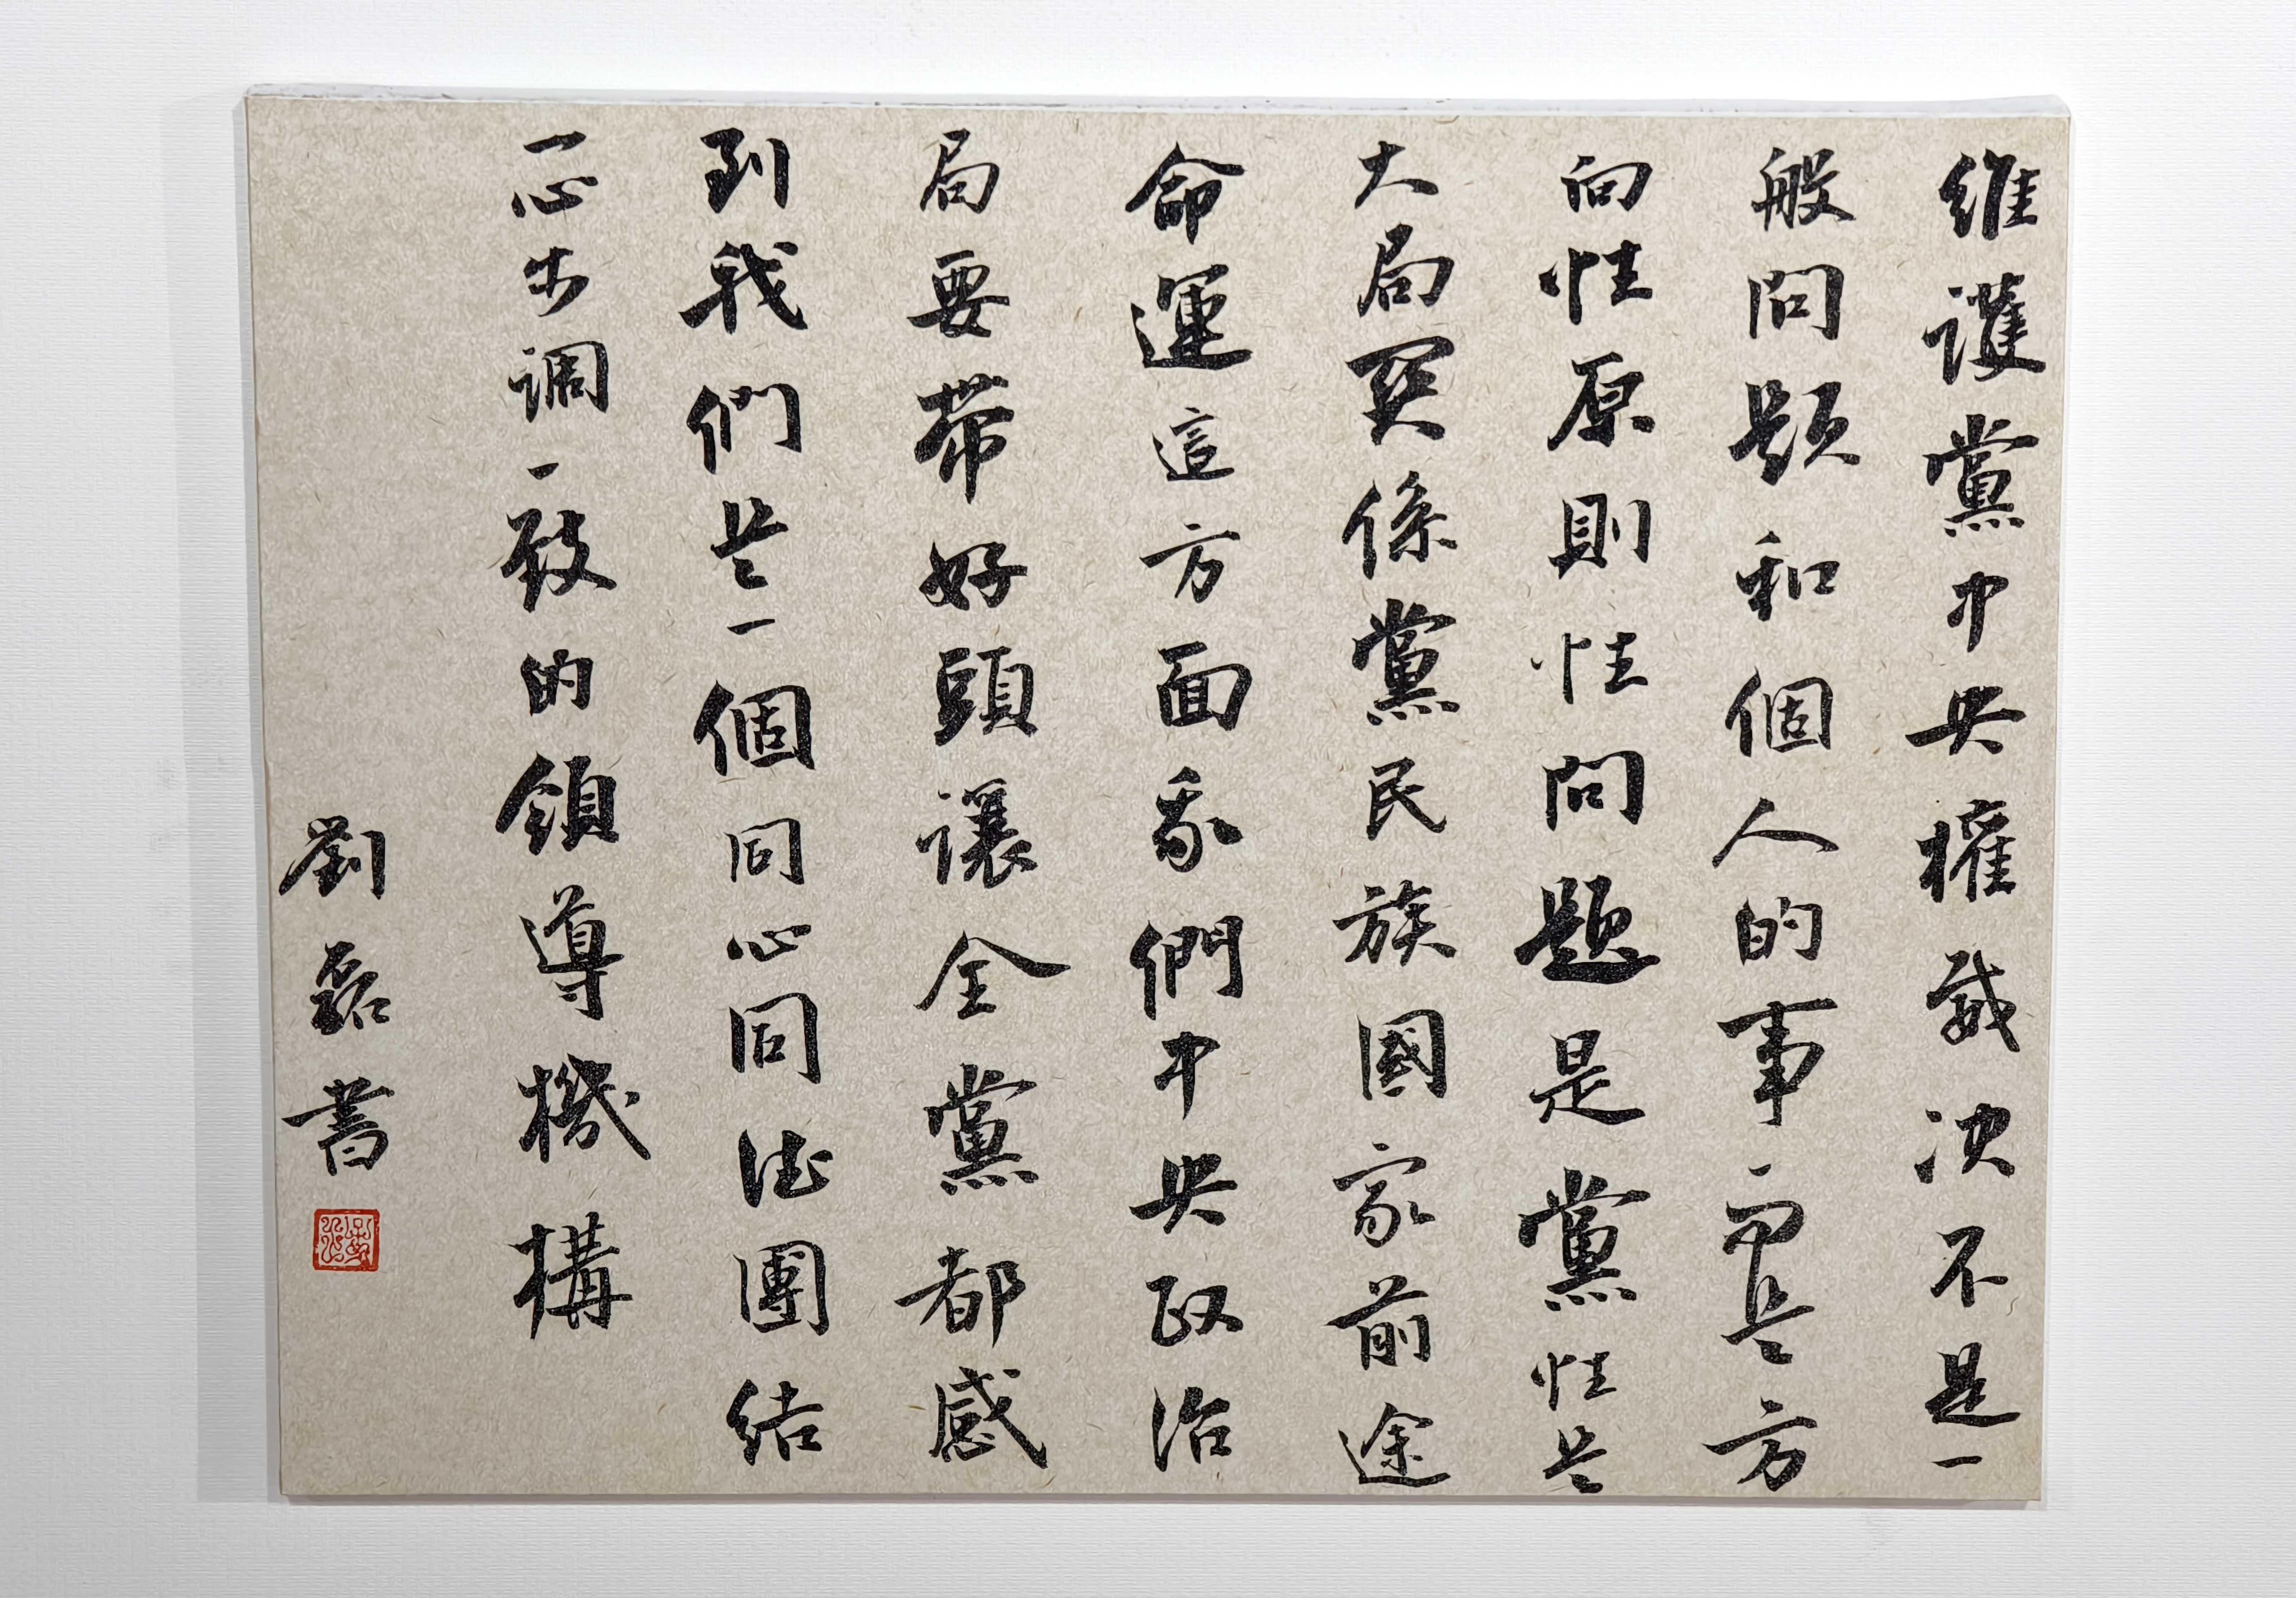 維護黨中央權威决不是一
般問題和個人的事而是方
向性原則性問題是黨性是
大局関係黨民族國家前途
命運這方面我們中央政治
局要帶好頭讓全黨都感
到我們是一個同心同德團結
一心步調一致的領導機構
劉磊書